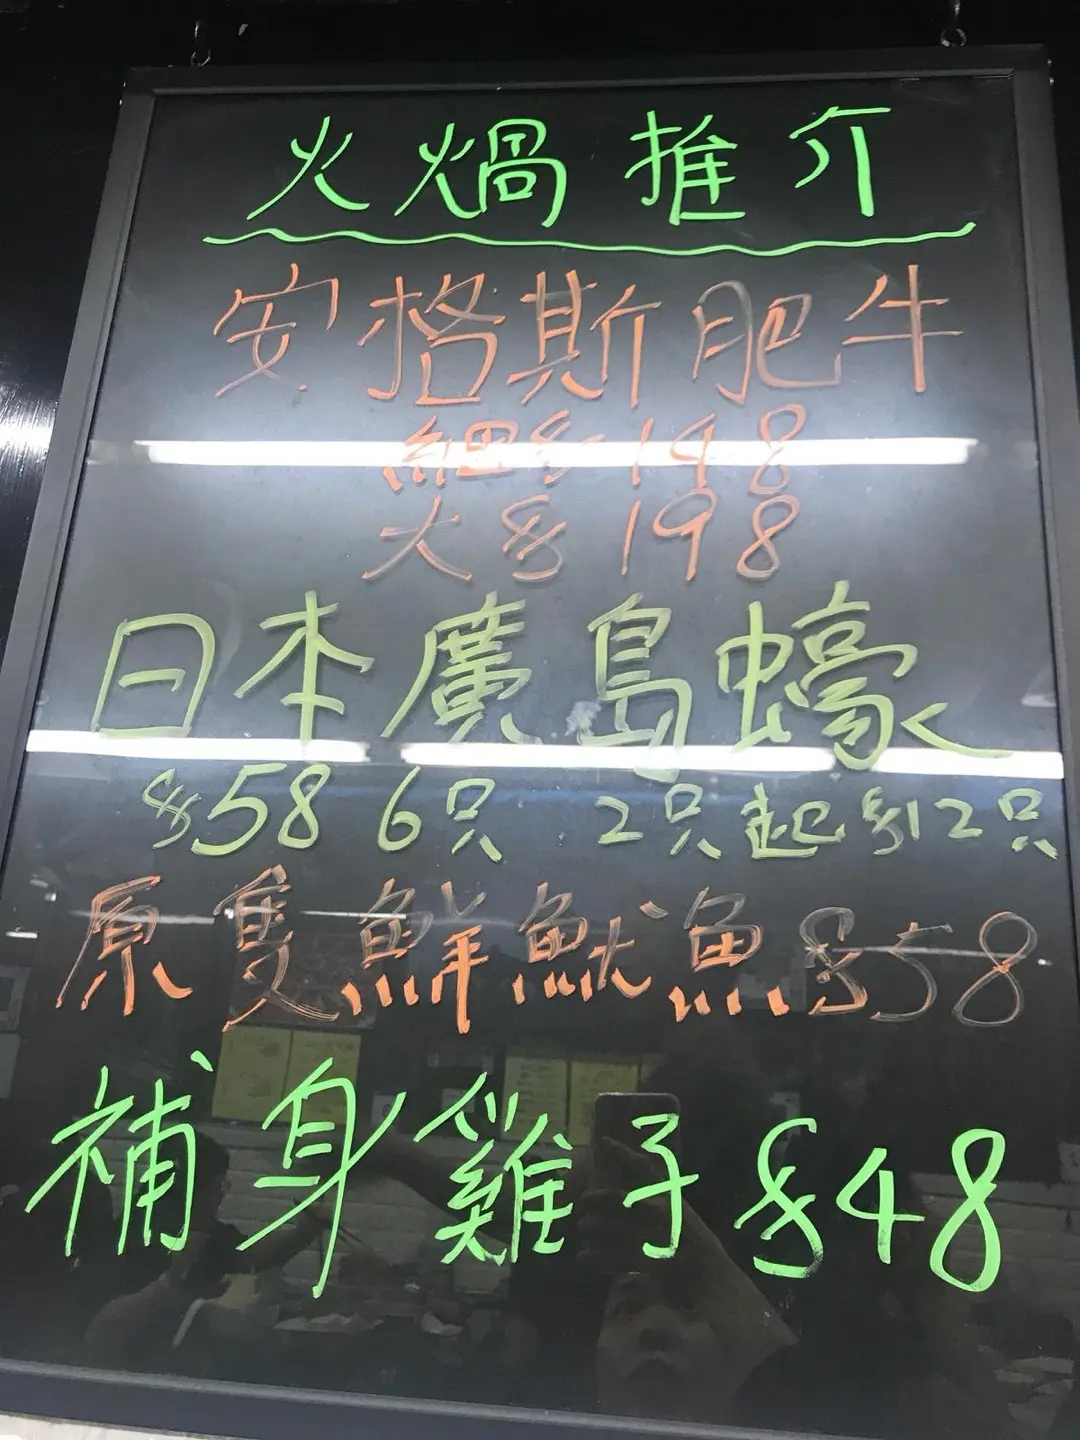 火煱推介
安格斯肥牛
細$148
大$198
日本廣島蠔
$58 6只 2只起 $12只
原隻鮮魷魚$58
補身雞子$48